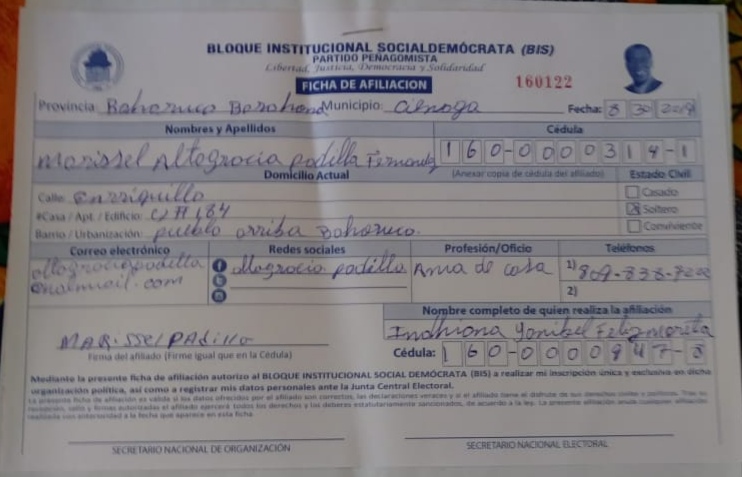 BLOQUE INSTITUCIONAL SOCIALDEMÓCRATA (BIS)
PARTIDO PEÑAGOMISTA
Libertad, Justicia, Democracia y Solidaridad
FICHA DE AFILIACION
160122
Provincia: Bahoruco Barahona Municipio: Cienaga Fecha: 8 30 2018
Nombres y Apellidos Cédula
Marissel Altagracia Padilla Fernandez 160-0000314-1
Domicilio Actual (Anexar copia de cédula del afiliado) Estado Civil
Calle: Enriquillo Casado
#Casa / Apt. / Edificio: C/# 184 Soltero
Barrio / Urbanización: pueblo arriba Bahoruco. Conviviente
Correo electrónico Redes sociales Profesión/Oficio Teléfonos
altagraciapadilla Altagracia padilla Ama de casa 1) 809-838-
@hotmail.com 2)
Nombre completo de quien realiza la afiliación
Marissel Padilla Indhiana Yanibel Feliz
Firma del afiliado (Firme igual que en la Cédula) Cédula: 160-0000947-8
Mediante la presente ficha de afiliación autorizo al BLOQUE INSTITUCIONAL SOCIAL DEMÓCRATA (BIS) a realizar mi inscripción única y exclusiva en dicha
organización política, así como a registrar mis datos personales ante la Junta Central Electoral.
La presente ficha de afiliación es valida si los datos ofrecidos por el afiliado son correctos, las declaraciones veraces y si el afiliado tiene el disfrute de sus derechos civiles y políticos. Tras su
recepción, sello y firmas autorizadas el afiliado ejercerá todos los derechos y los deberes estatutariamente sancionados, de acuerdo a la ley. La presente afiliación anula cualquier afiliación
realizada con anterioridad a la fecha que aparece en esta ficha.
SECRETARIO NACIONAL DE ORGANIZACIÓN SECRETARIO NACIONAL ELECTORAL